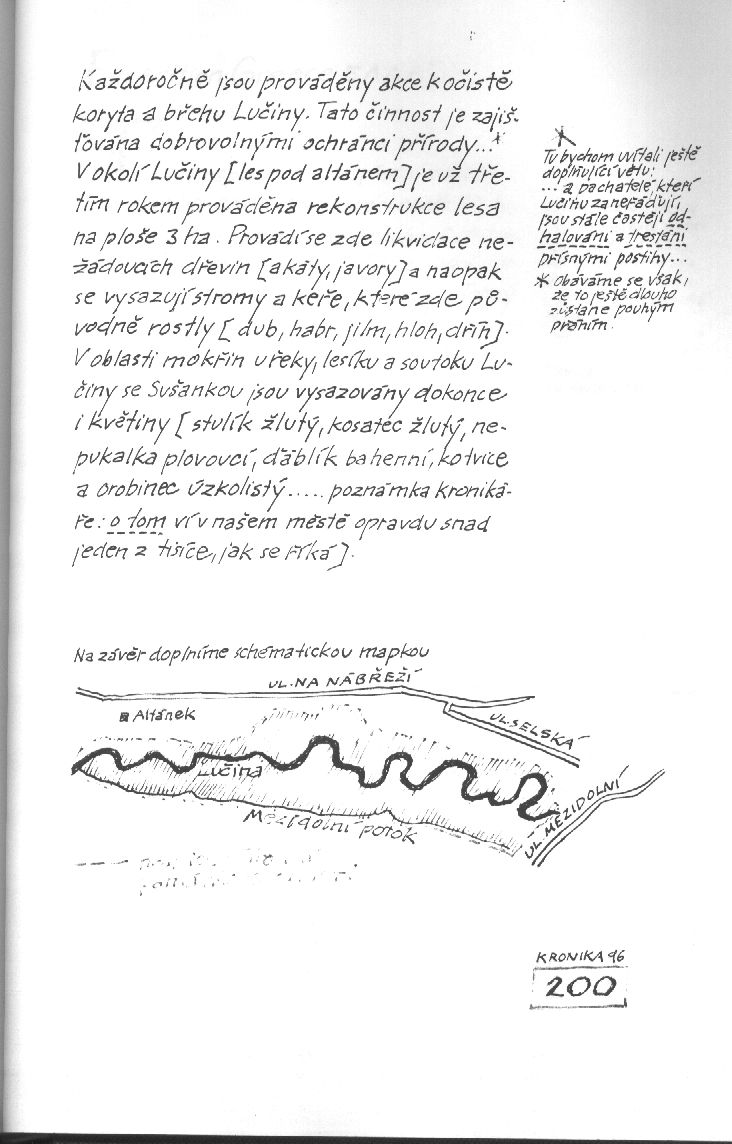 Každoročně jsou prováděny akce k očistě
koryta a břehu Lučiny. Tato činnost je zajiš-
ťována dobrovolnými ochránci přírody...*
V okolí Lučiny [les pod altánem] je už tře-
tím rokem prováděna rekonstrukce lesa
na ploše 3 ha. Provádí se zde likvidace ne-
žádoucích dřevin [akáty, javory] a naopak
se vysazují stromy a keře, které zde pů-
vodně rostly [dub, habr, jilm, hloh, dřín].
V oblasti mokřin u řeky, lesíku a soutoku Lu-
činy se Sušankou jsou vysazovány dokonce
i květiny [stulík žlutý, kosatec žlutý, ne-
pukalka plovoucí, ďáblík bahenní, kotvice
a orobinec úzkolistý..... poznámka kroniká-
ře: o tom ví v našem městě opravdu snad
jeden z tisíce, jak se říká].
*
Tu bychom uvítali ještě
doplňující větu:
... a pachatelé, kteří
Lučinu zaneřádují,
jsou stále častěji od-
halováni a trestáni
přísnými postihy...
* Obáváme se však,
že to ještě dlouho
zůstane pouhým
přáním.
Na závěr doplníme schématickou mapkou
UL. NA NÁBŘEŽÍ
Altánek
UL. SELSKÁ
Lučina
Mezidolní potok
UL. MEZIDOLNÍ
KRONIKA 96
200